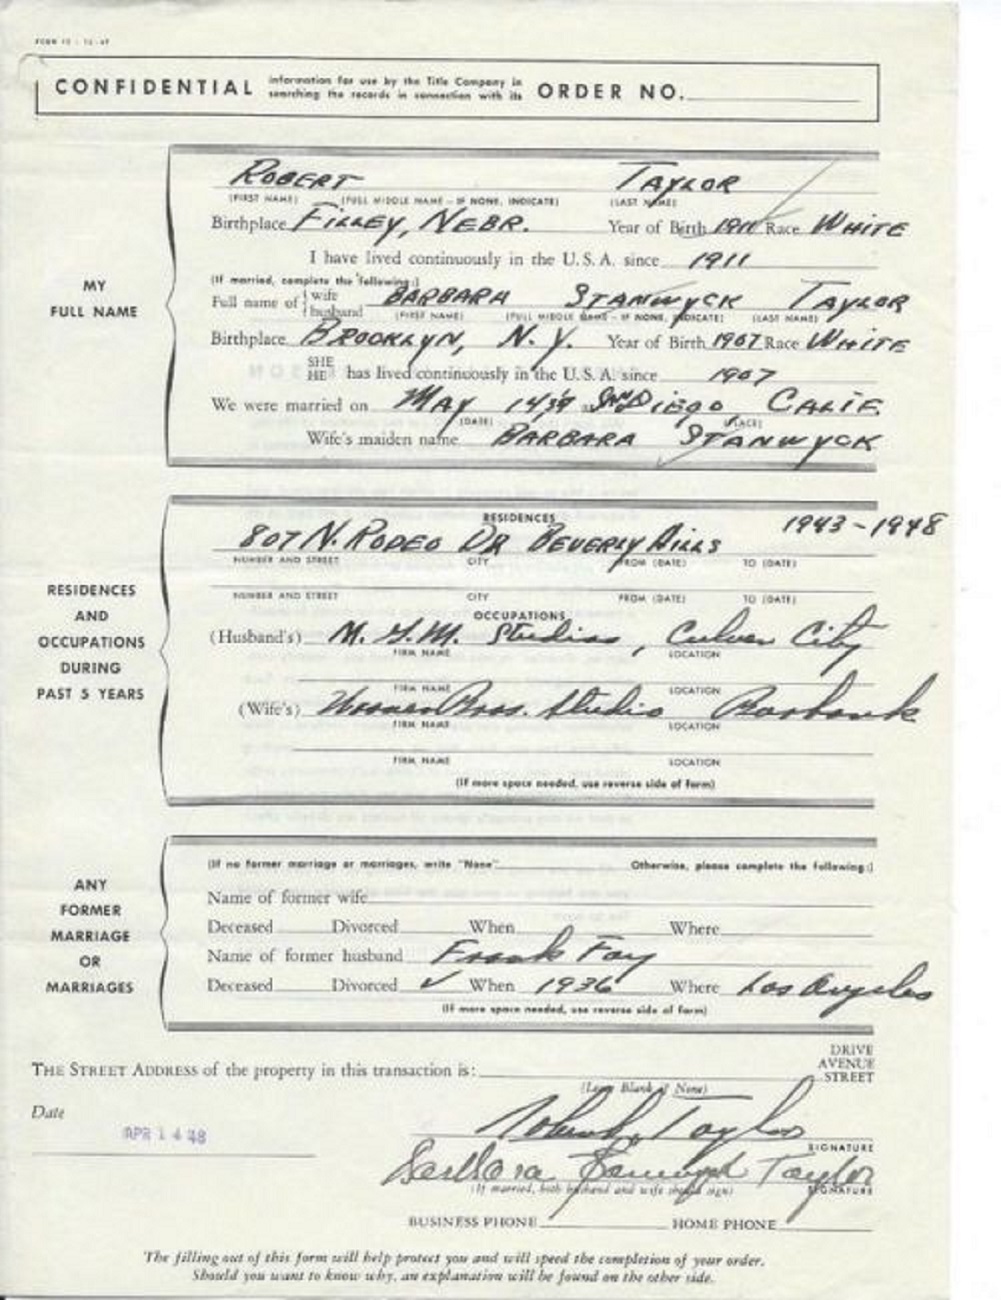 CONFIDENTIAL information for use by the Title Company in searching the records in connection with its ORDER NO.
ROBERT TAYLOR
(FIRST NAME) (FULL MIDDLE NAME - IF NONE, INDICATE) (LAST NAME)
Birthplace FILLEY, NEBR. Year of Birth 1911 Race WHITE
I have lived continuously in the U.S.A. since 1911
(If married, complete the following:)
MY FULL NAME
Full name of { wife husband BARBARA STANWYCK TAYLOR
(FIRST NAME) (FULL MIDDLE NAME - IF NONE, INDICATE) (LAST NAME)
Birthplace BROOKLYN, N.Y. Year of Birth 1907 Race WHITE
SHE HE has lived continuously in the U.S.A. since 1907
We were married on MAY 14 39 SAN DIEGO, CALIF.
(DATE) (PLACE)
Wife's maiden name BARBARA STANWYCK
RESIDENCES
1943-1948
807 N. RODEO DR BEVERLY HILLS
NUMBER AND STREET CITY FROM (DATE) TO (DATE)
NUMBER AND STREET CITY FROM (DATE) TO (DATE)
RESIDENCES AND OCCUPATIONS DURING PAST 5 YEARS
OCCUPATIONS
(Husband's) M.G.M. Studios, Culver City
FIRM NAME LOCATION
FIRM NAME LOCATION
(Wife's) Warner Bros. Studio Burbank
FIRM NAME LOCATION
FIRM NAME LOCATION
(If more space needed, use reverse side of form)
(If no former marriage or marriages, write "None" Otherwise, please complete the following:)
ANY FORMER MARRIAGE OR MARRIAGES
Name of former wife
Deceased Divorced When Where
Name of former husband Frank Fay
Deceased Divorced ✓ When 1936 Where Los Angeles
(If more space needed, use reverse side of form)
THE STREET ADDRESS of the property in this transaction is: DRIVE AVENUE STREET
(Leave Blank if None)
Date
APR 14 48
Robert Taylor
SIGNATURE
Barbara Stanwyck Taylor
(If married, both husband and wife should sign) SIGNATURE
BUSINESS PHONE HOME PHONE
The filling out of this form will help protect you and will speed the completion of your order.
Should you want to know why, an explanation will be found on the other side.